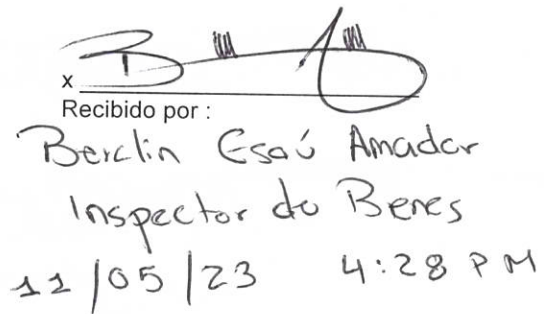 x
Recibido por :
Berclin Esaú Amador
Inspector de Benes
11/05/23 4:28 PM